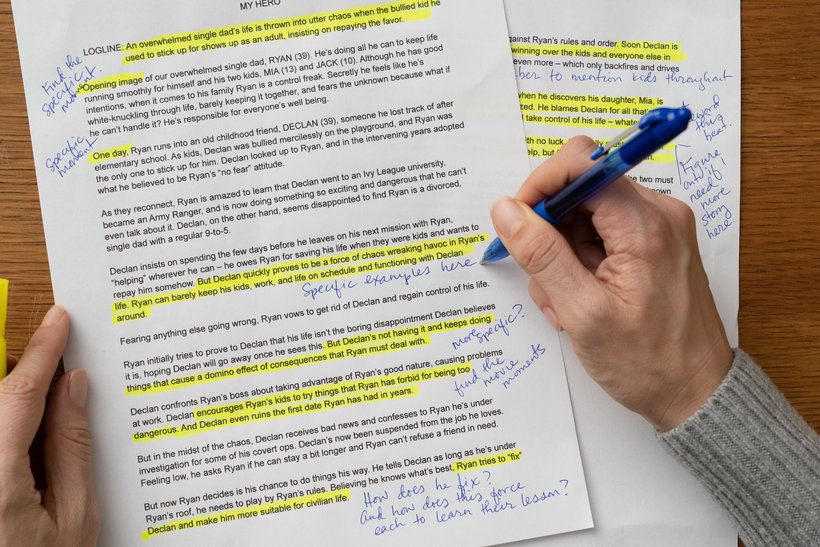 MY HERO
LOGLINE: An overwhelmed single dad's life is thrown into utter chaos when the bullied kid he
used to stick up for shows up as an adult, insisting on repaying the favor.
Find the
specific
moment.
Opening image of our overwhelmed single dad, RYAN (39). He's doing all he can to keep life
running smoothly for himself and his two kids, MIA (13) and JACK (10). Although he has good
intentions, when it comes to his family Ryan is a control freak. Secretly he feels like he's
white-knuckling through life, barely keeping it together, and fears the unknown because what if
he can't handle it? He's responsible for everyone's well being.
Specific
moment
One day, Ryan runs into an old childhood friend, DECLAN (39), someone he lost track of after
elementary school. As kids, Declan was bullied mercilessly on the playground, and Ryan was
the only one to stick up for him. Declan looked up to Ryan, and in the intervening years adopted
what he believed to be Ryan's "no fear" attitude.
As they reconnect, Ryan is amazed to learn that Declan went to an Ivy League university,
became an Army Ranger, and is now doing something so exciting and dangerous that he can't
even talk about it. Declan, on the other hand, seems disappointed to find Ryan is a divorced,
single dad with a regular 9-to-5.
Declan insists on spending the few days before he leaves on his next mission with Ryan,
"helping" wherever he can – he owes Ryan for saving his life when they were kids and wants to
repay him somehow. But Declan quickly proves to be a force of chaos wreaking havoc in Ryan's
life. Ryan can barely keep his kids, work, and life on schedule and functioning with Declan
around.
Specific examples here
Fearing anything else going wrong, Ryan vows to get rid of Declan and regain control of his life.
Ryan initially tries to prove to Declan that his life isn't the boring disappointment Declan believes
it is, hoping Declan will go away once he sees this. But Declan's not having it and keeps doing
things that cause a domino effect of consequences that Ryan must deal with.
more specific?
find the
movie
moments
Declan confronts Ryan's boss about taking advantage of Ryan's good nature, causing problems
at work. Declan encourages Ryan's kids to try things that Ryan has forbid for being too
dangerous. And Declan even ruins the first date Ryan has had in years.
But in the midst of the chaos, Declan receives bad news and confesses to Ryan he's under
investigation for some of his covert ops. Declan's now been suspended from the job he loves.
Feeling low, he asks Ryan if he can stay a bit longer and Ryan can't refuse a friend in need.
But now Ryan decides is his chance to do things his way. He tells Declan as long as he's under
Ryan's roof, he needs to play by Ryan's rules. Believing he knows what's best, Ryan tries to "fix"
Declan and make him more suitable for civilian life.
How does he fix?
And how does this force
each to learn their lesson?
against Ryan's rules and order. Soon Declan is
winning over the kids and everyone else in
even more – which only backfires and drives
to mention kids throughout
when he discovers his daughter, Mia, is
He blames Declan for all that's
take control of his life –
this
beat.
with no luck.
help, but
Figure
out if I
need
more
story
here
the two must
known